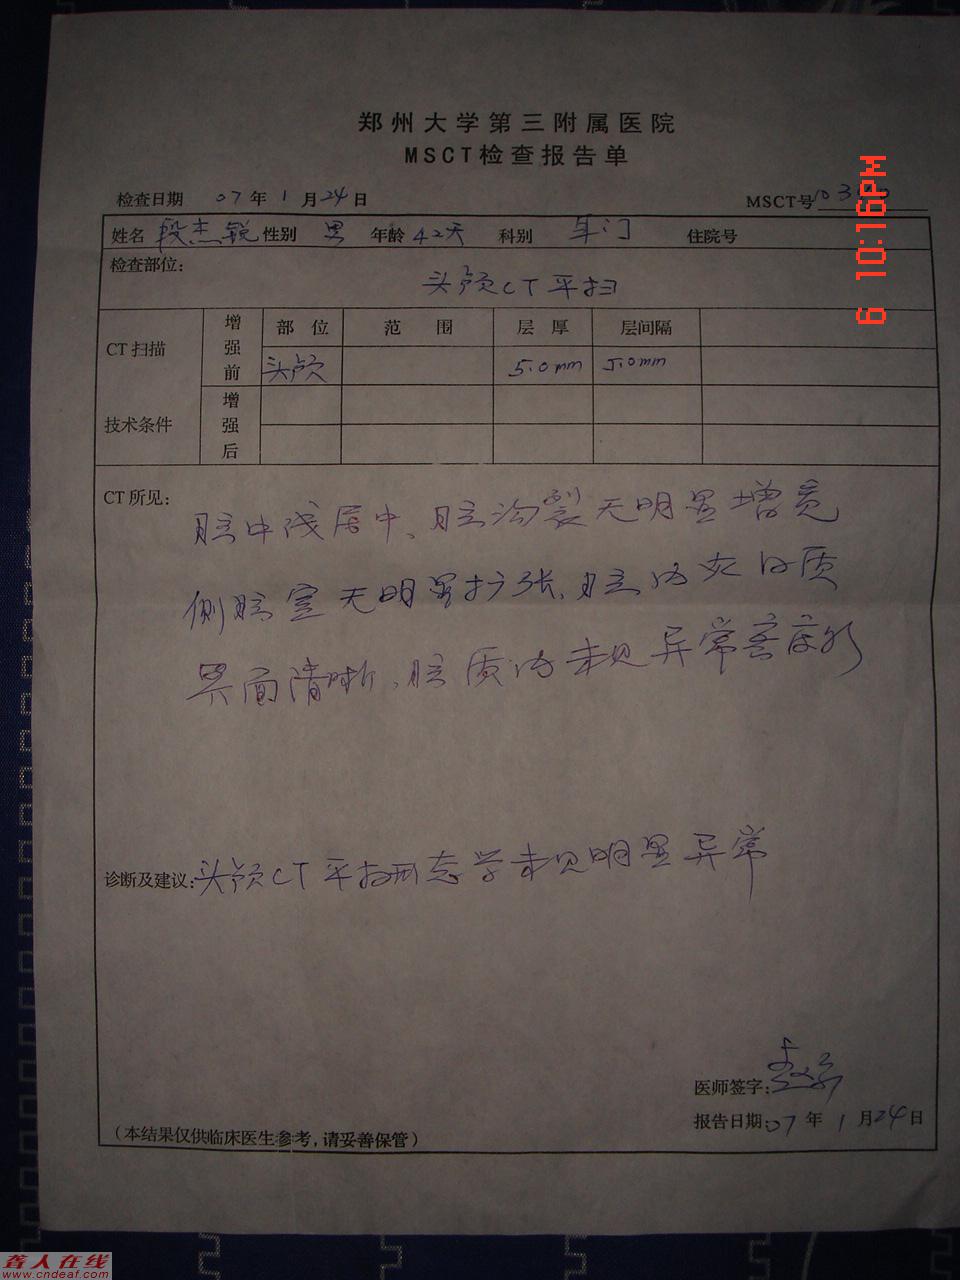 郑州大学第三附属医院
MSCT检查报告单
检查日期 07年1月24日 MSCT号
姓名 段杰锐 性别 男 年龄 42天 科别 住院号
检查部位:
头颅CT平扫
CT扫描
技术条件
增强前
部位 范围 层厚 层间隔
头颅 5.0mm 5.0mm
增强后
CT所见:
脑中线居中、脑沟裂无明显增宽
侧脑室无明显扩张、脑内灰白质
界面清晰、脑质内未见异常密度影
诊断及建议: 头颅CT平扫形态学未见明显异常
医师签字:
报告日期: 07年1月24日
(本结果仅供临床医生参考,请妥善保管)
6 10:16PM
聋人在线
www.cndeaf.com